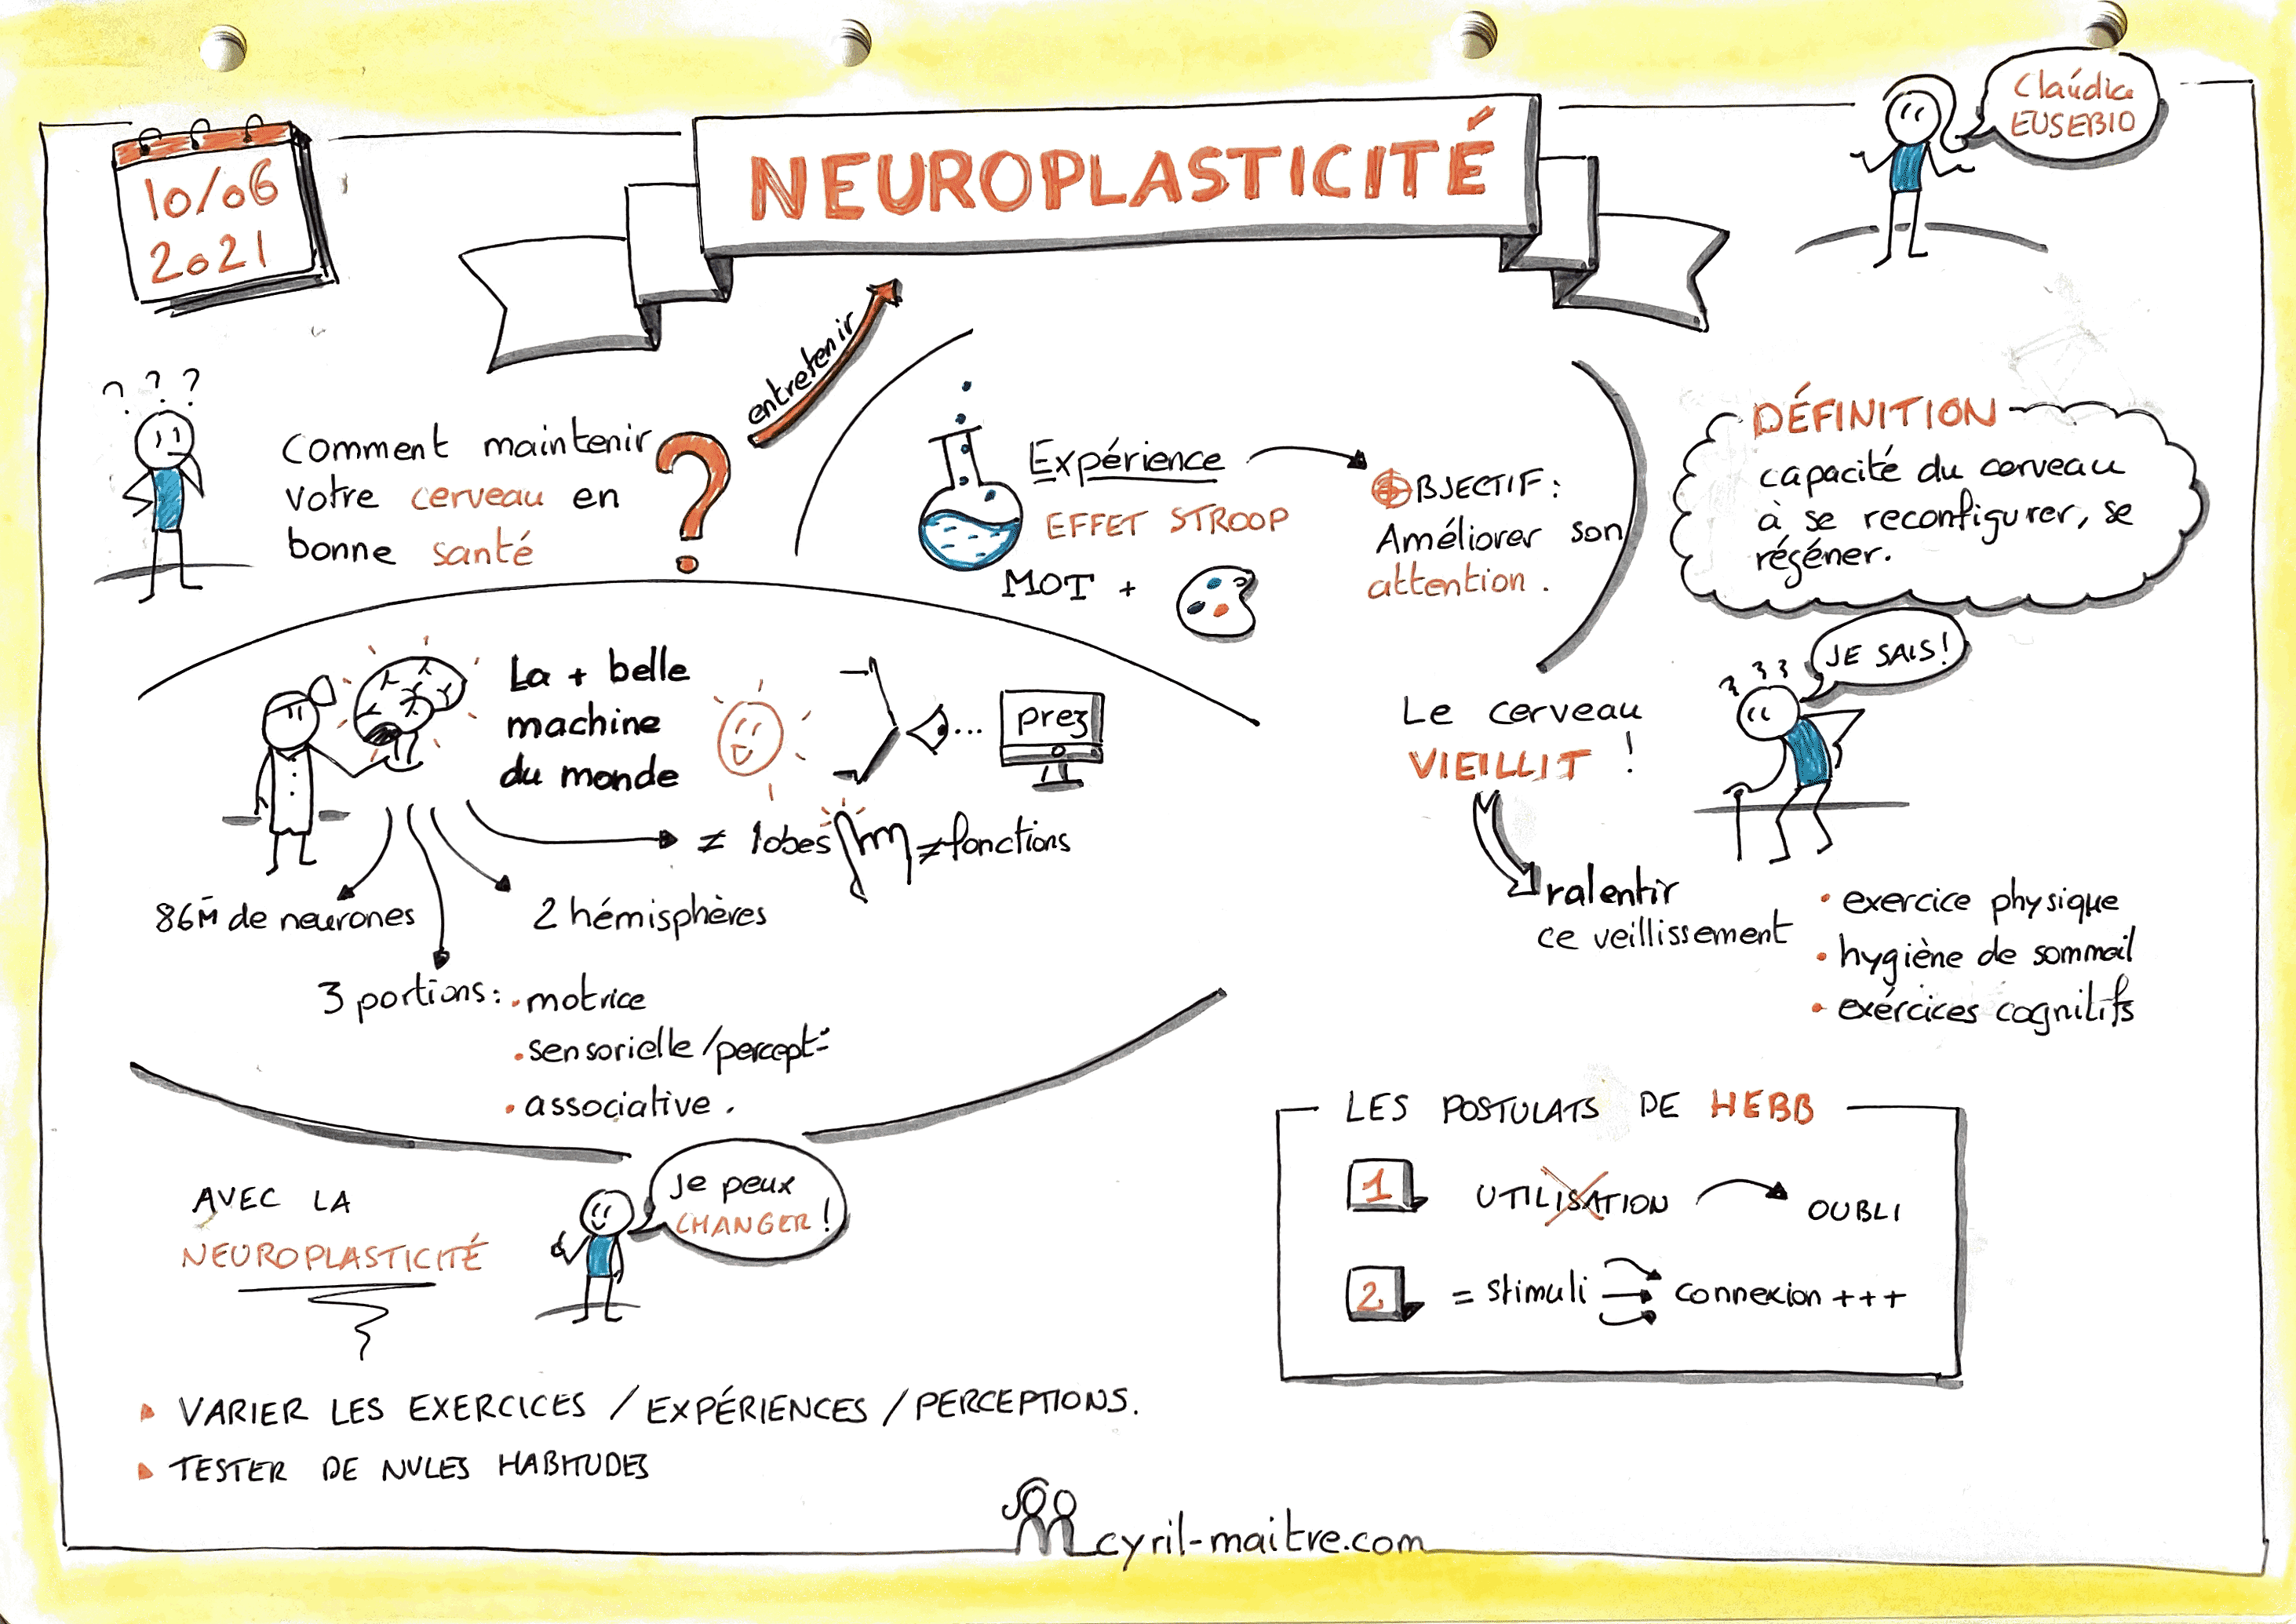 10/06
2021
NEUROPLASTICITÉ
Claúdia
EUSEBIO
? ? ?
Comment maintenir
votre cerveau en
bonne santé
?
entretenir
Expérience
EFFET STROOP
MOT +
OBJECTIF :
Améliorer son
attention .
DÉFINITION
capacité du cerveau
à se reconfigurer, se
régéner.
La + belle
machine
du monde
...
prez
≠ lobes
≠ fonctions
86M̄ de neurones
2 hémisphères
3 portions :
• motrice
• sensorielle / percept°
• associative .
JE SAIS !
Le cerveau
VIEILLIT !
ralentir
ce veillissement
• exercice physique
• hygiène de sommeil
• exércices cognitifs
AVEC LA
NEUROPLASTICITÉ
Je peux
CHANGER !
VARIER LES EXERCICES / EXPÉRIENCES / PERCEPTIONS.
TESTER DE NVLES HABITUDES
LES POSTULATS DE HEBB
1 UTILISATION → OUBLI
2 = stimuli → connexion +++
cyril-maitre.com